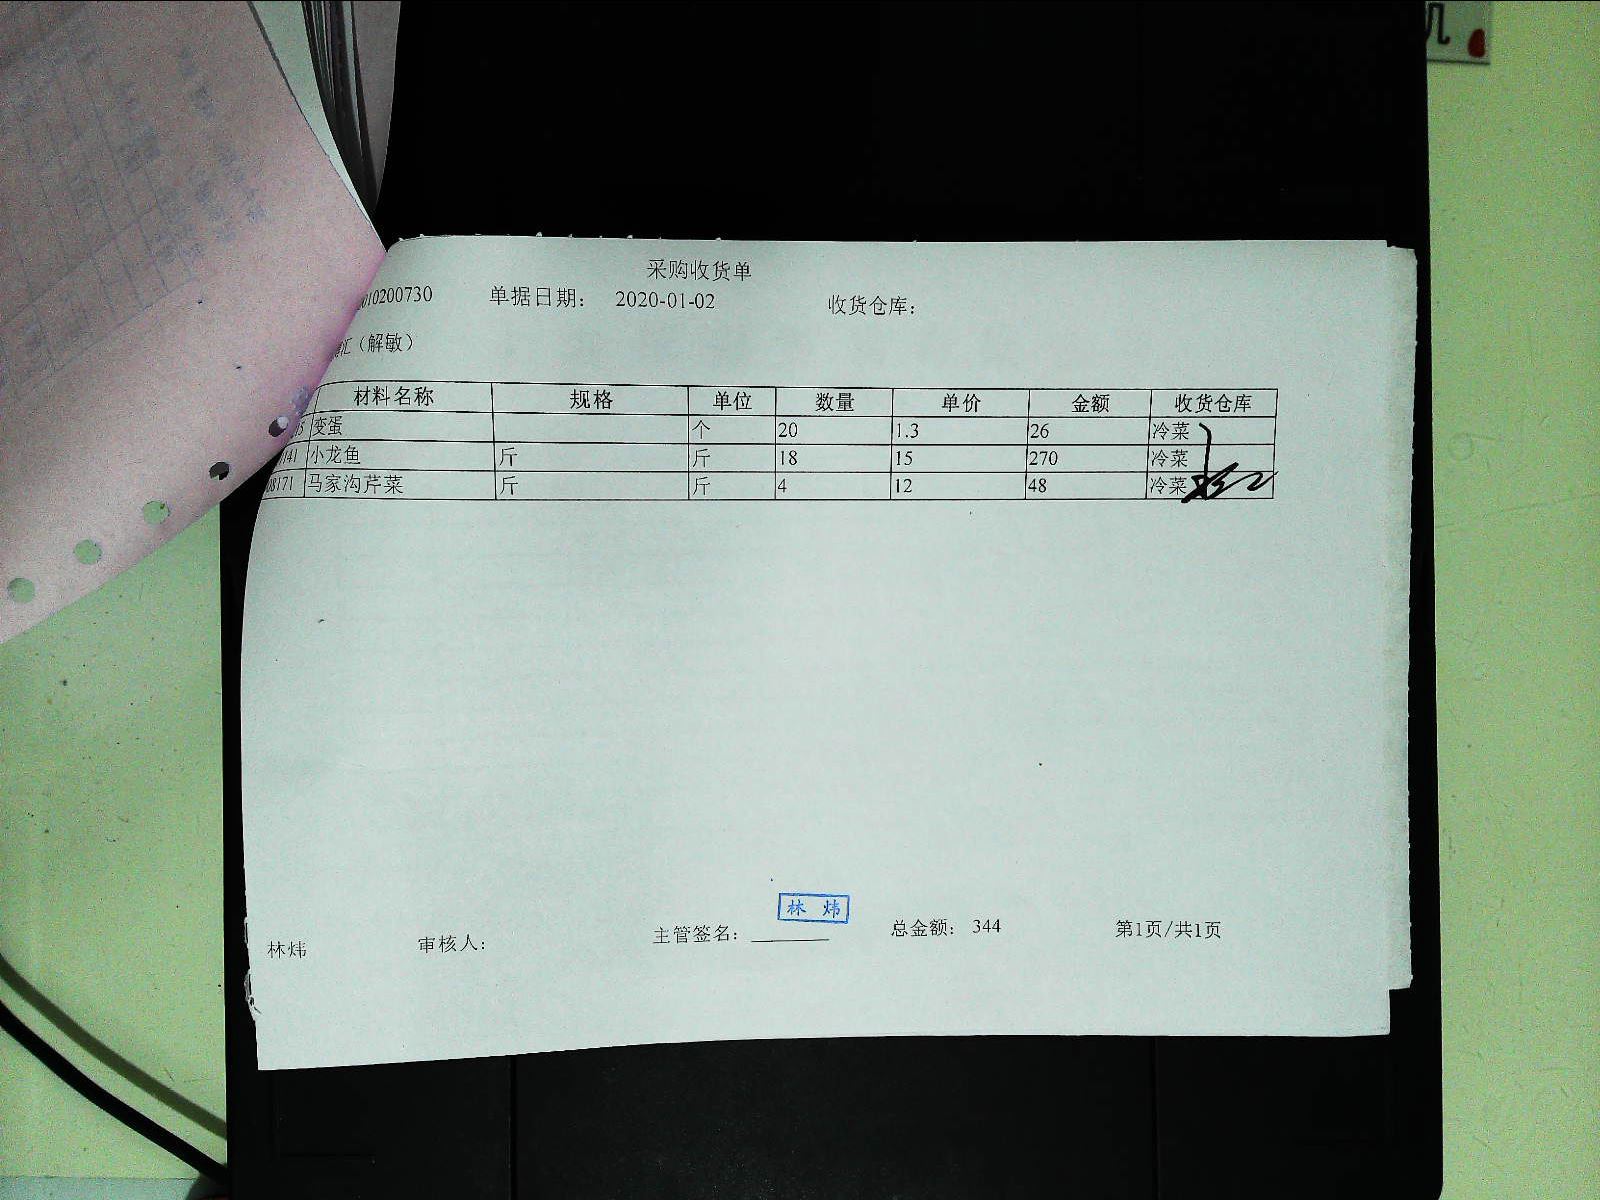 采购收货单
010200730 单据日期： 2020-01-02 收货仓库：
汇（解敏）
材料名称 规格 单位 数量 单价 金额 收货仓库
5 变蛋 个 20 1.3 26 冷菜
141 小龙鱼 斤 斤 18 15 270 冷菜
08171 马家沟芹菜 斤 斤 4 12 48 冷菜
林炜
林炜 审核人： 主管签名： 总金额： 344 第1页/共1页